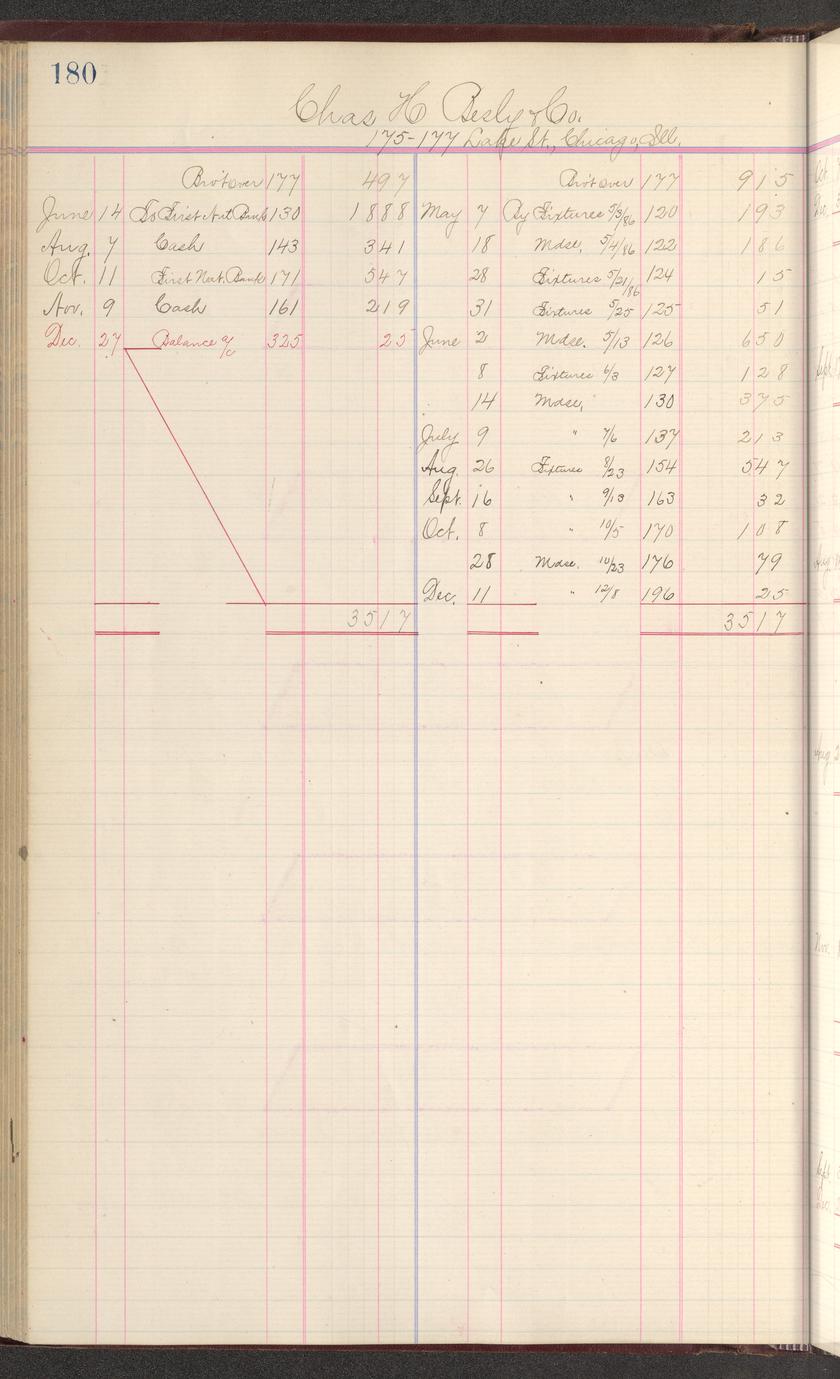 180
Chas H Besly & Co.
175-177 Lake St., Chicago, Ill.
Bro't over 177 497 Bro't over 177 915
June 14 To First Nat Bank 130 1888 May 7 By Fixtures 5/3/86 120 193
Aug. 7 Cash 143 341 18 Mdse. 5/4/86 122 186
Oct. 11 First Nat. Bank 171 547 28 Fixtures 5/21/86 124 15
Nov. 9 Cash 161 219 31 Fixtures 5/25 125 51
Dec. 27 Balance a/c 325 25 June 2 Mdse. 5/13 126 650
8 Fixtures 6/3 127 128
14 Mdse, " 130 375
July 9 " 7/6 137 213
Aug. 26 Fixtures 8/23 154 547
Sept. 16 " 9/13 163 32
Oct. 8 " 10/5 170 108
28 Mdse. 10/23 176 79
Dec. 11 " 12/8 196 25
3517 3517